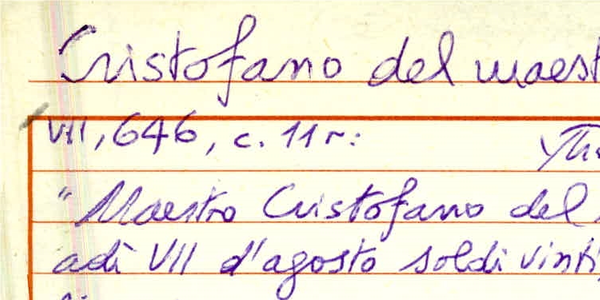 Cristofano del maest
VII, 646, c. 11r:
"Maestro Cristofano del
adì VII d'agosto soldi vinti